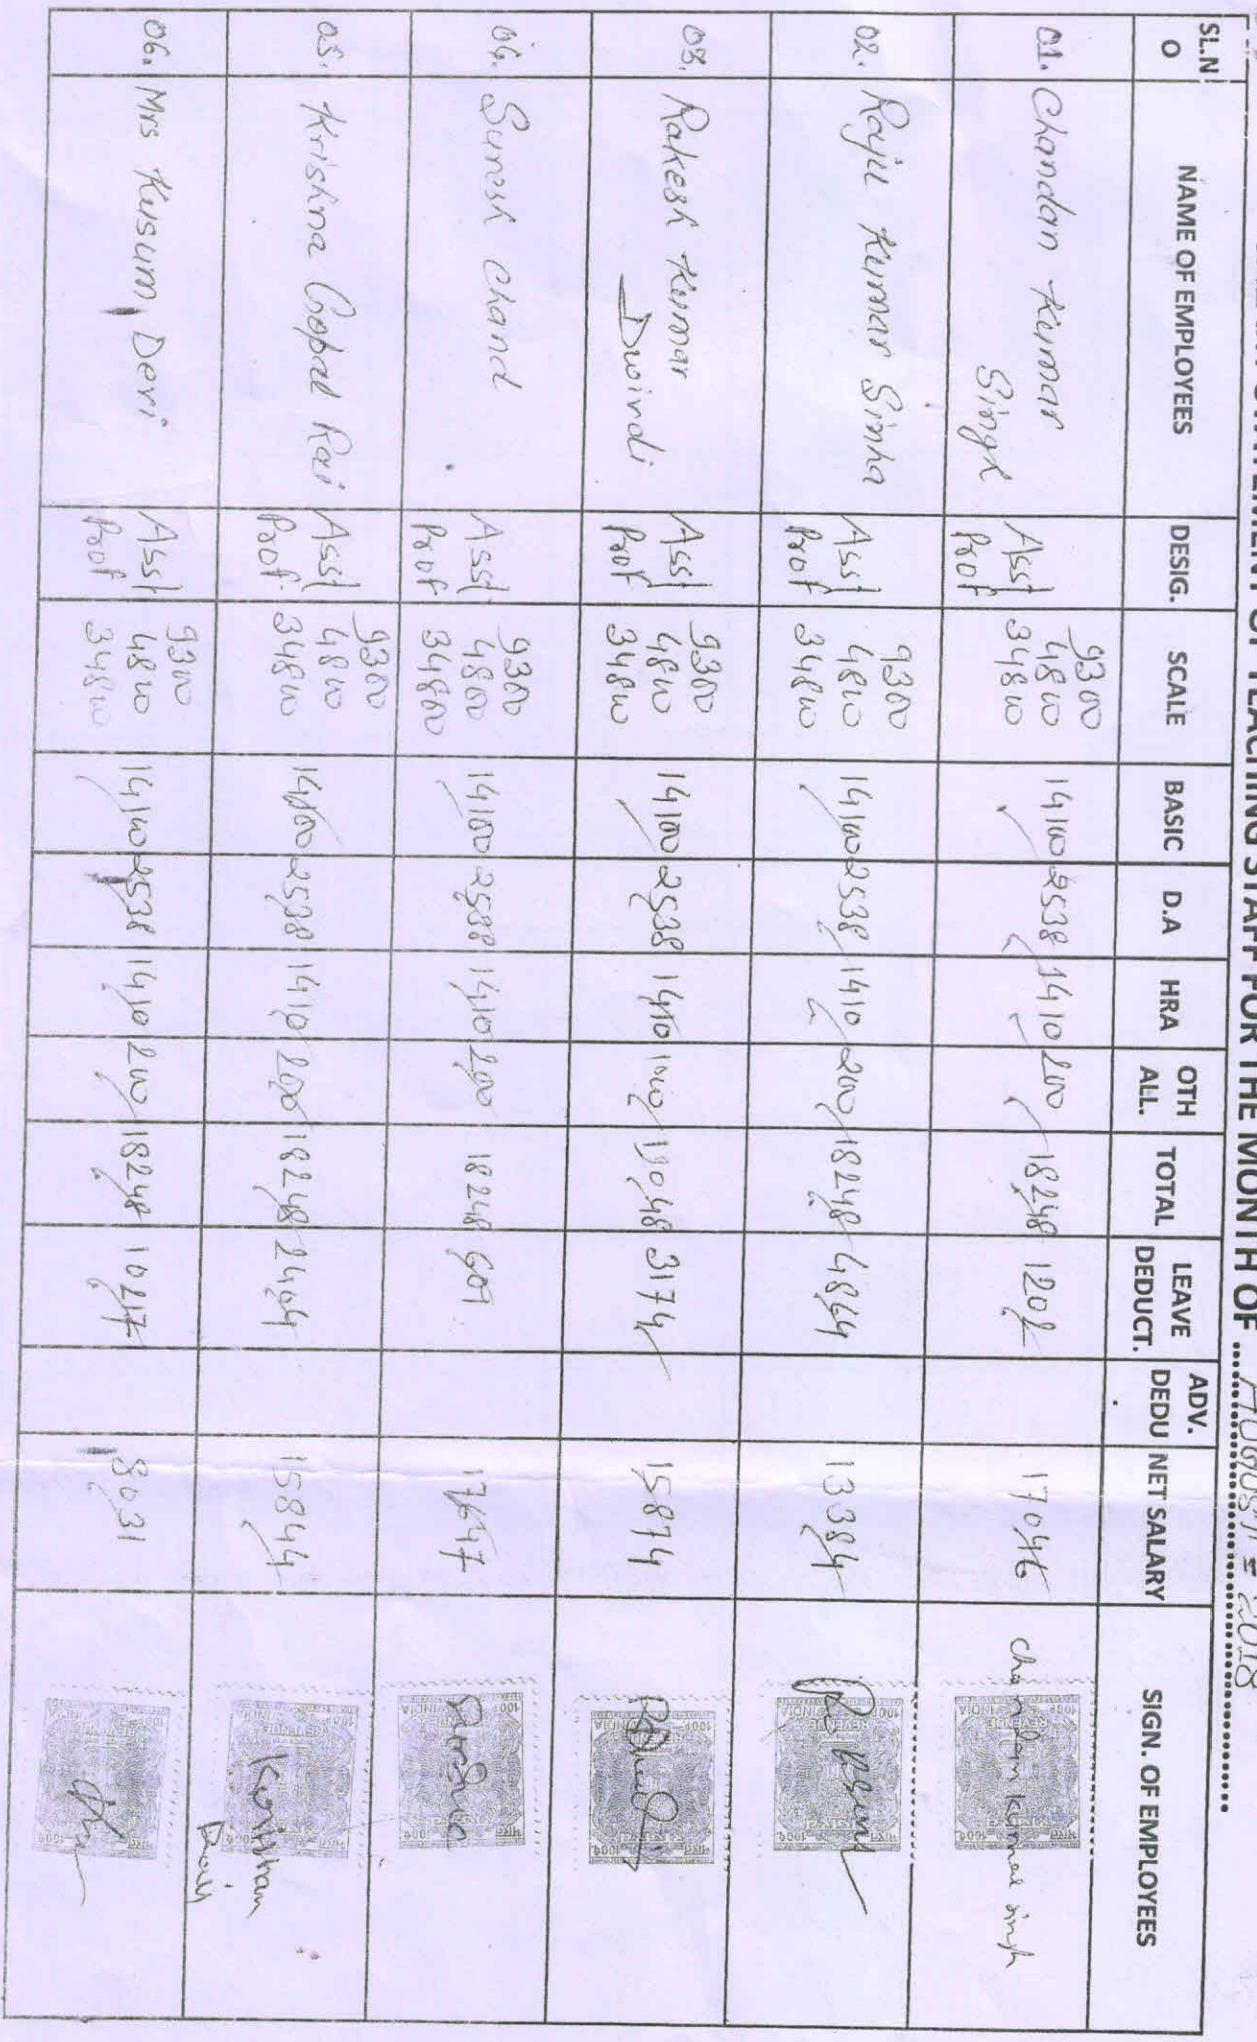 STATEMENT OF TEACHING STAFF FOR THE MONTH OF AUGUST = 2018
SL.N O NAME OF EMPLOYEES DESIG. SCALE BASIC D.A HRA OTH ALL. TOTAL LEAVE DEDUCT. ADV. DEDU NET SALARY SIGN. OF EMPLOYEES
01. Chandan Kumar Singh Asst Prof 9300 4800 34800 14100 2538 1410 200 18248 1202 17046 chandan kumar singh
02. Raju Kumar Sinha Asst Prof 9300 4800 34800 14100 2538 1410 200 18248 4864 13384
03. Rakesh Kumar Dwivdi Asst Prof 9300 4800 34800 14100 2538 1410 1000 19048 3174 15874
04. Suresh Chand Asst Prof 9300 4800 34800 14100 2538 1410 200 18248 601 17647
05. Krishna Gopal Rai Asst Prof 9300 4800 34800 14100 2538 1410 200 18248 2404 15844
06. Mrs Kusum Devi Asst Prof 9300 4800 34800 14100 2538 1410 200 18248 10217 8031